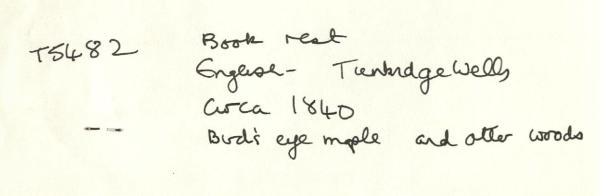 T5482 Book rest
English - Tunbridge Wells
Circa 1840
-- Bird's eye maple and other woods